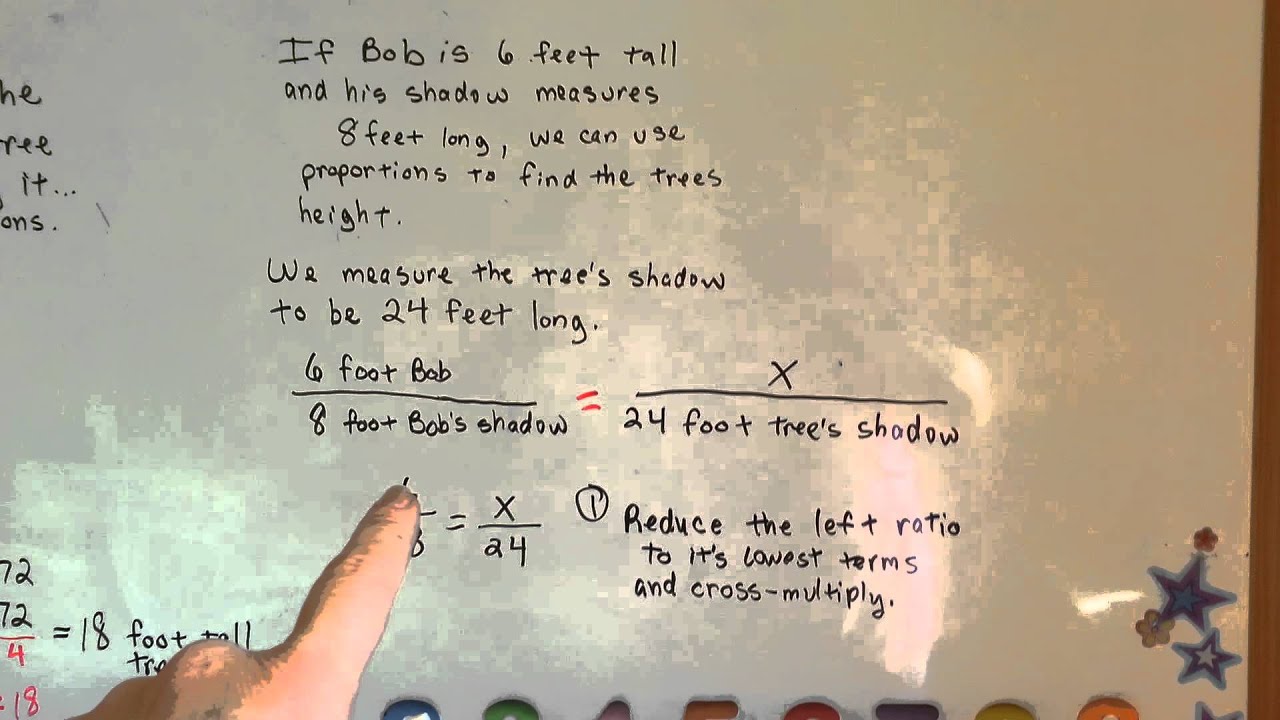 If Bob is 6 feet tall
and his shadow measures
8 feet long, we can use
proportions to find the trees
height.
We measure the tree's shadow
to be 24 feet long.
6 foot Bob = X
8 foot Bob's shadow 24 foot tree's shadow
= X
24
① Reduce the left ratio
to it's lowest terms
and cross-multiply.
it...
72
72 = 18 foot tall
4
= 18